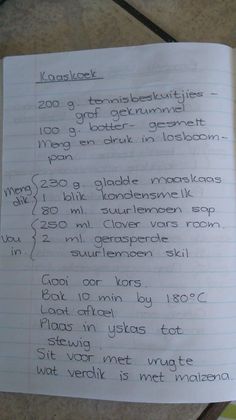 Kaaskoek
200 g. tennisbeskuitjies -
grof gekrummel
100 g. botter - gesmelt
Meng en druk in losboom-
pan
Meng dik
230 g. gladde maaskaas
1 blik kondensmelk
80 ml. suurlemoen sap
Vou in
250 ml. Clover vars room
2 ml. gerasperde
suurlemoen skil
Gooi oor kors.
Bak 10 min by 180°C
Laat afkoel
Plaas in yskas tot
stewig
Sit voor met vrugte
wat verdik is met maizena.